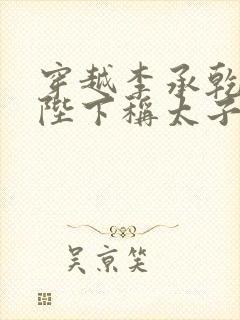 穿越李承乾
陛下稱太子
吴京笑